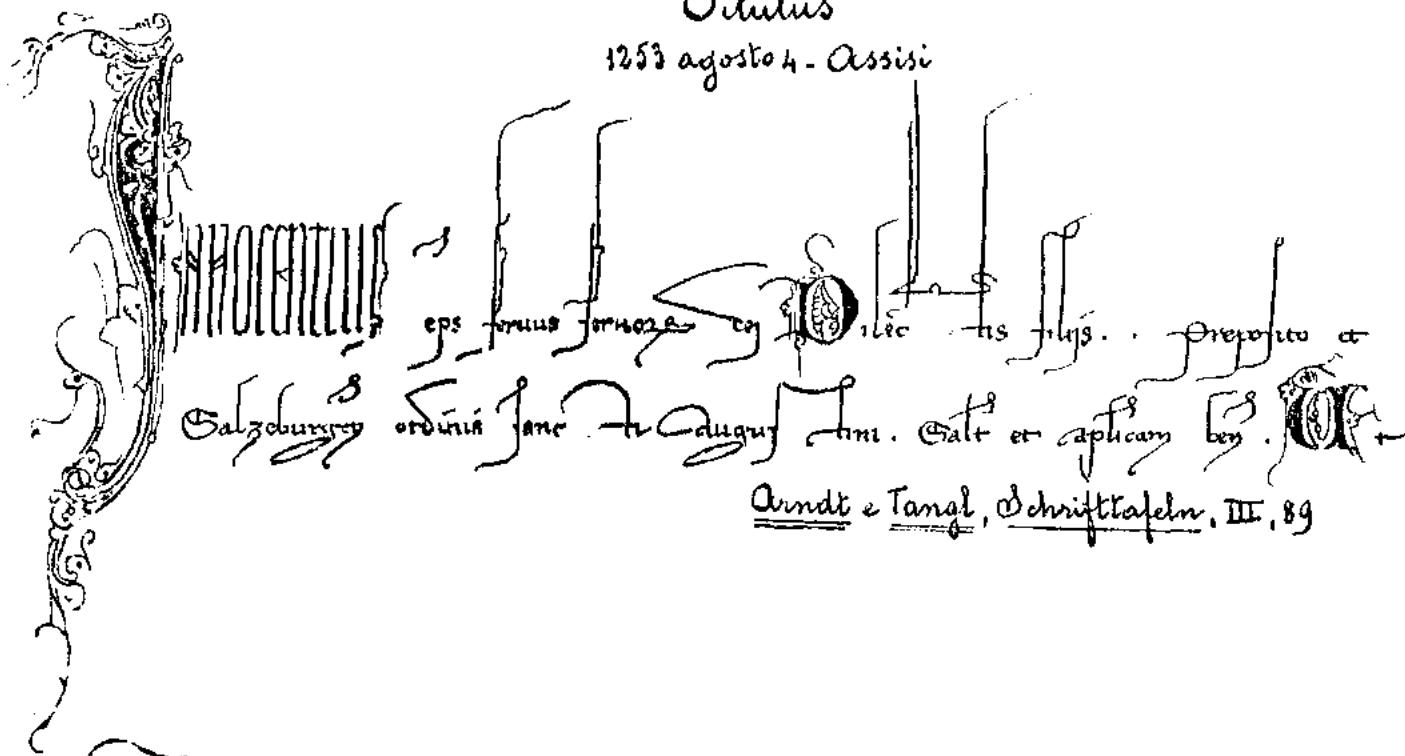 Titulus
1253 agosto 4 - Assisi
eps seruus seruoꝝ dei Dilec tis filijs . . Preposito et
Salzeburgeñ ordinis sanc ti Augus tini . Salt et aplicam beñ .
Arndt e Tangl, Schrifttafeln, III, 89